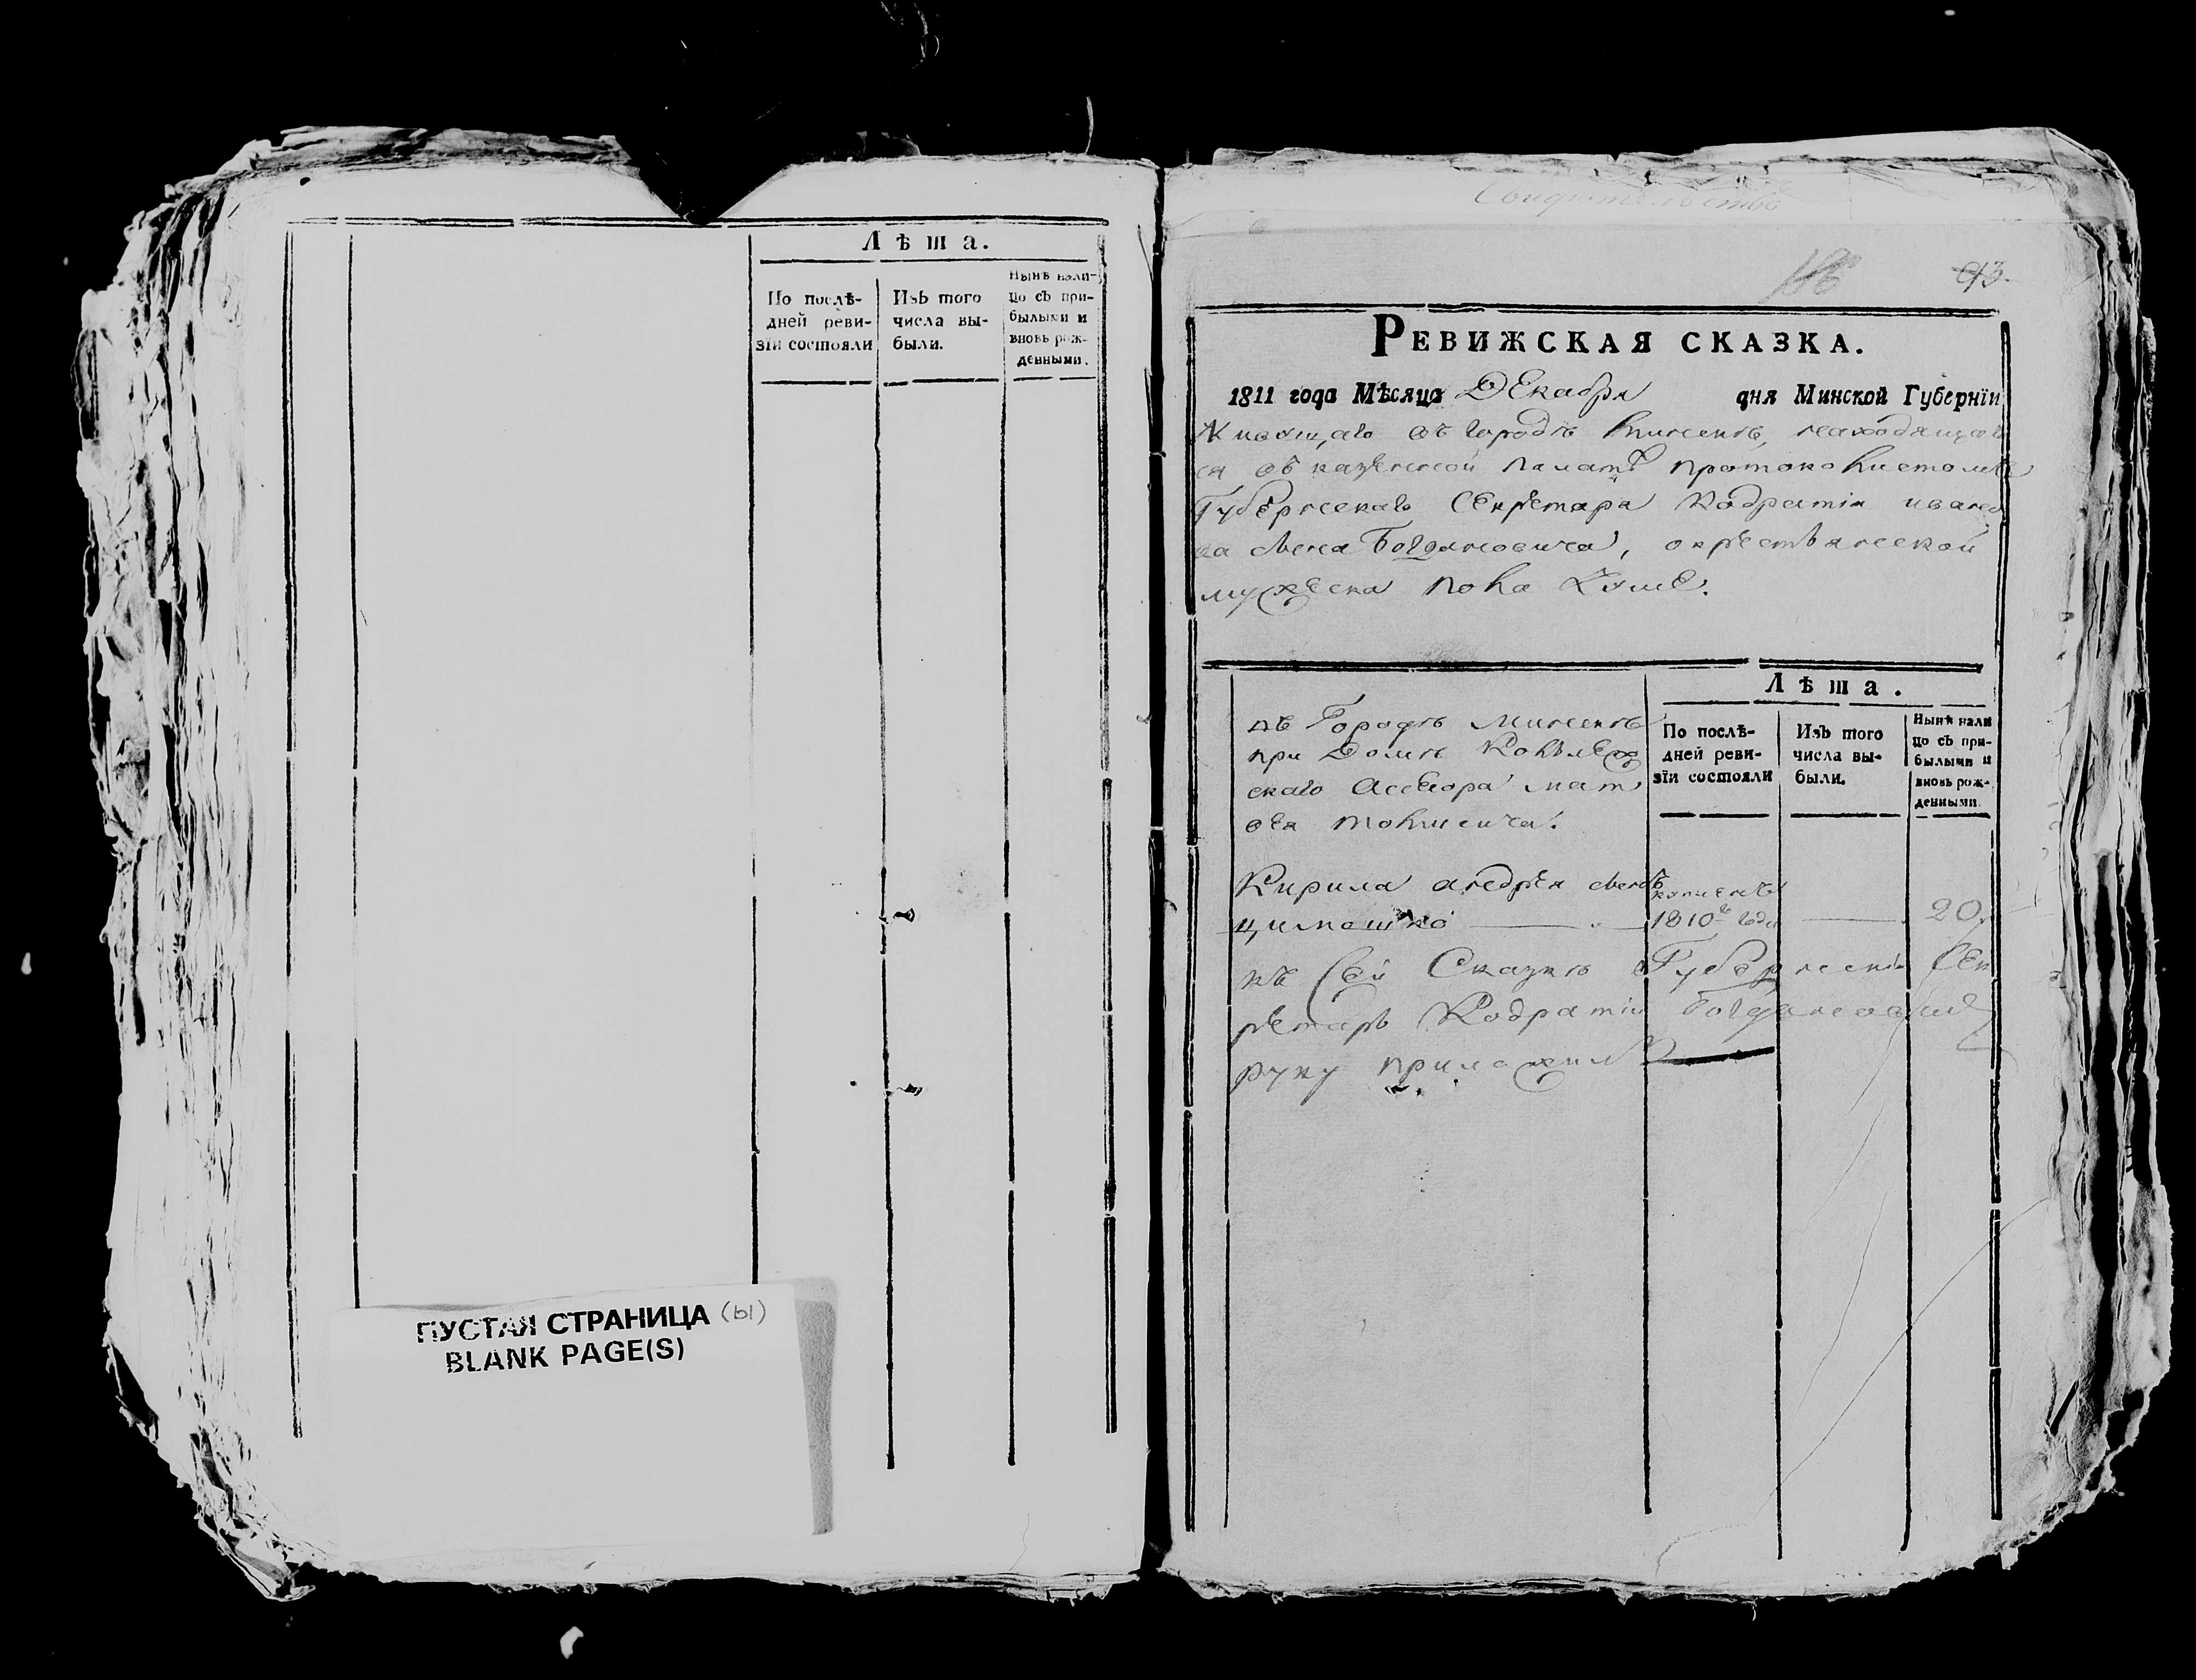 Лѣта.
По послѣ-
дней реви-
зїи состояли
Изъ того
числа вы-
были.
Нынѣ нали-
цо съ при-
былыми и
вновь рож-
денными.
ПУСТАЯ СТРАНИЦА (ы)
BLANK PAGE(S)
93.
РЕВИЖСКАЯ СКАЗКА.
1811 года Мѣсяца Декабря дня Минской Губернїи
Живущаго въ городѣ Минскѣ, находящаго
ся въ казенной палатѣ протоколистомъ
Губернскаго Секретаря Кодратія Ивано
ва сына Богдановича, о крестьянской
мужеска пола душѣ.
Лѣта.
По послѣ-
дней реви-
зїи состояли
Изъ того
числа вы-
были.
Нынѣ нали
цо съ при-
былыми и
вновь рож-
денными
въ Городѣ Минскѣ
при Домѣ Колѣжж
скаго Асесора мат
вея
Кирила андрея сынъ
цимошко 1810го года 20
къ сей Сказкѣ Губернскій Сек
ретарь Кодратій Богдановичь
руку приложилъ